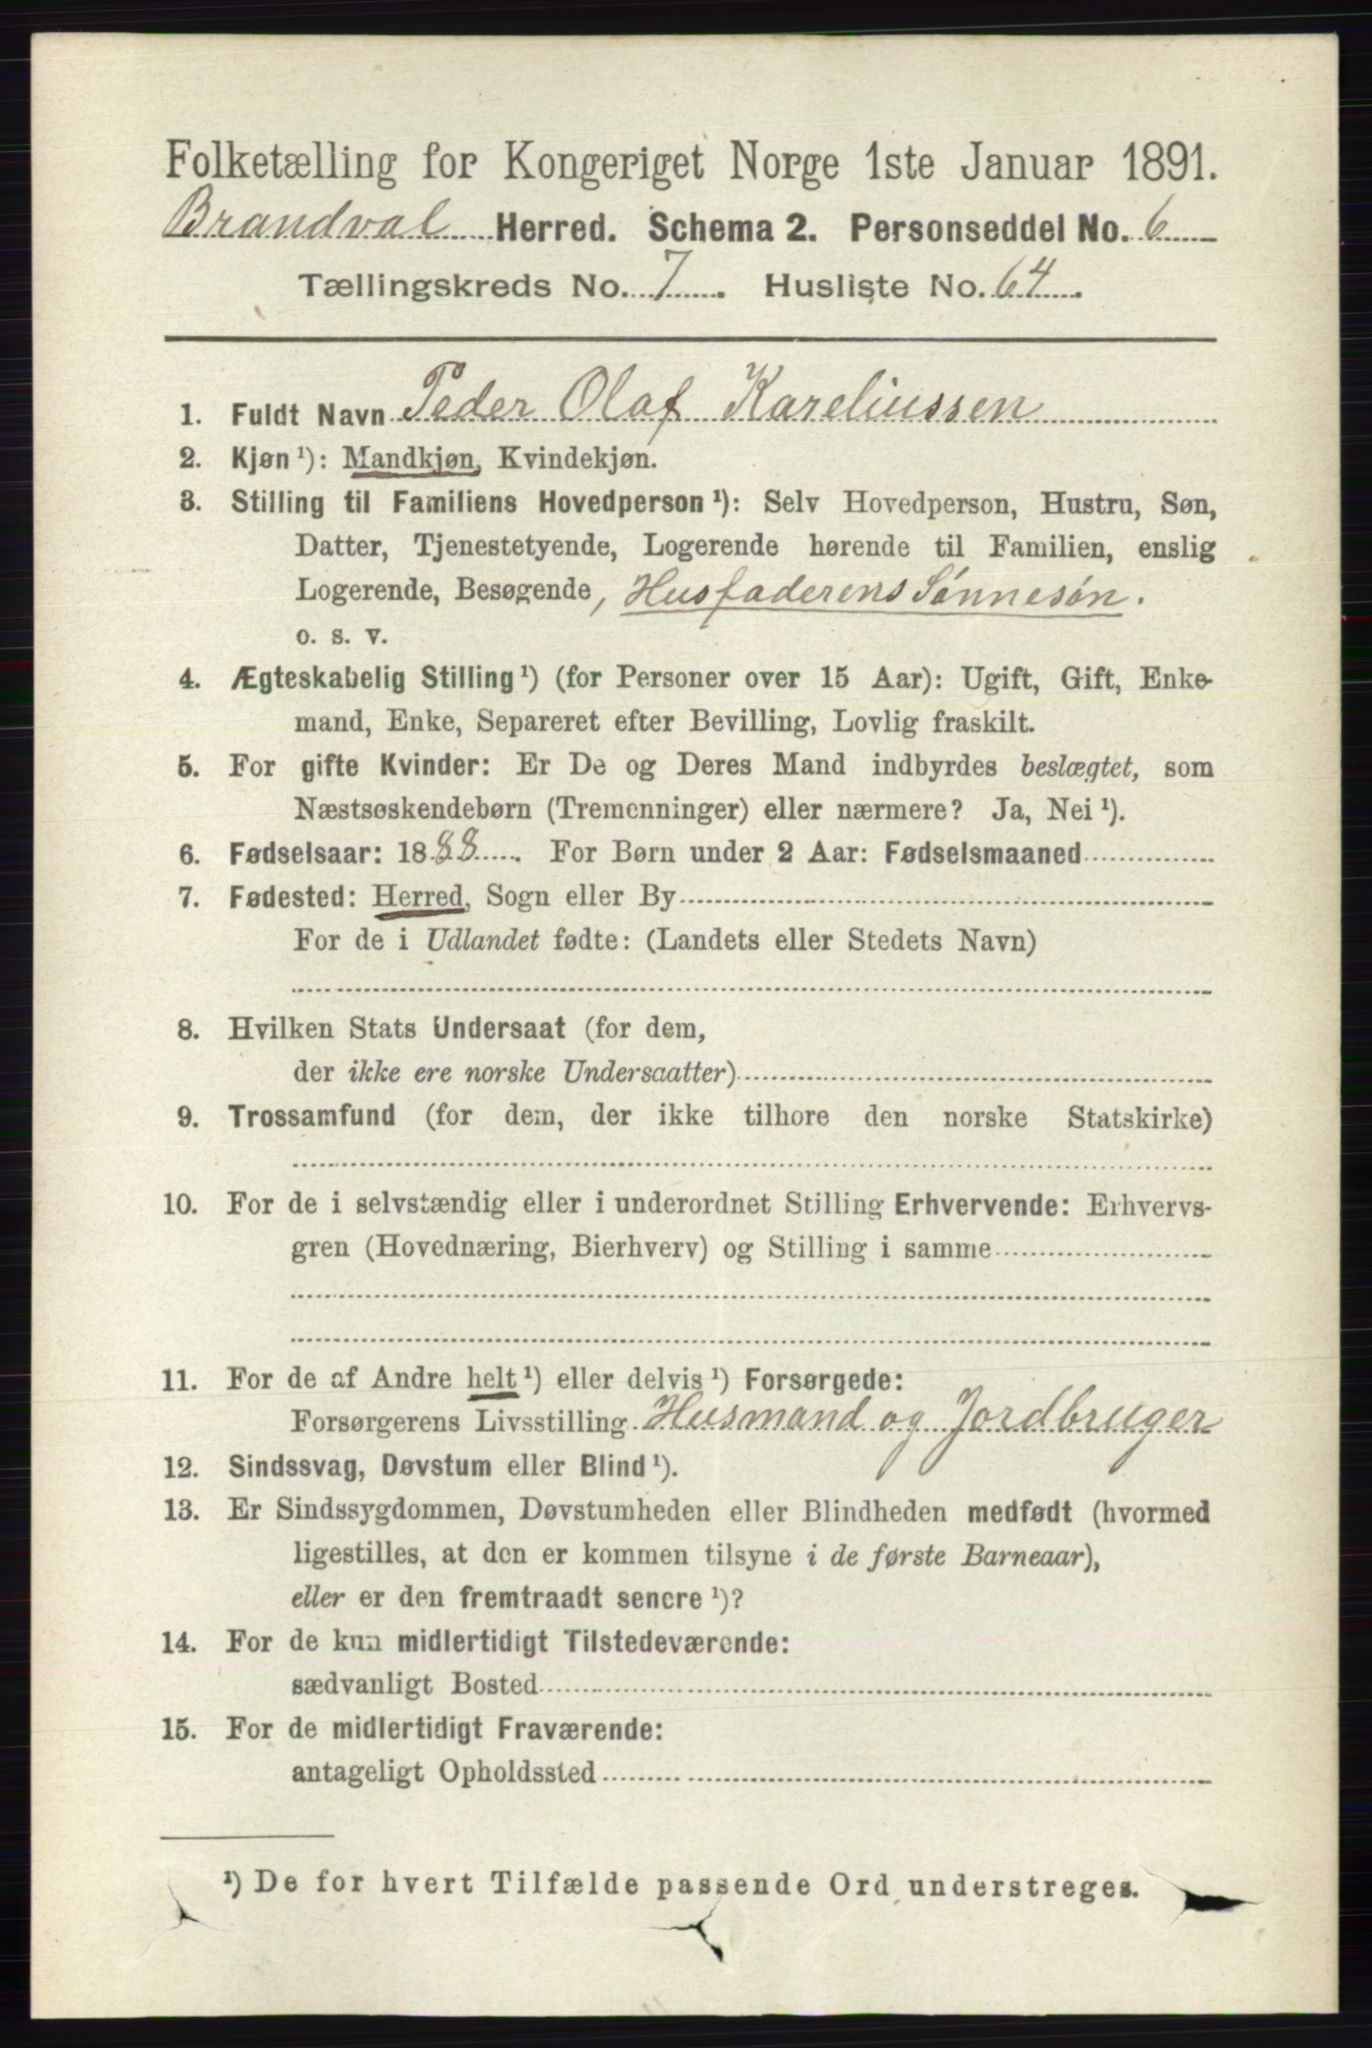 Folketælling for Kongeriget Norge 1ste Januar 1891.
Brandval Herred. Schema 2. Personseddel No. 6
Tællingskreds No. 7. Husliste No. 64.
1. Fuldt Navn Peder Olaf Kareliussen
2. Kjøn ¹): Mandkjøn, Kvindekjøn.
3. Stilling til Familiens Hovedperson ¹): Selv Hovedperson, Hustru, Søn,
Datter, Tjenestetyende, Logerende hørende til Familien, enslig
Logerende, Besøgende, Husfaderens Sønnesøn.
o. s. v.
4. Ægteskabelig Stilling ¹) (for Personer over 15 Aar): Ugift, Gift, Enke-
mand, Enke, Separeret efter Bevilling, Lovlig fraskilt.
5. For gifte Kvinder: Er De og Deres Mand indbyrdes beslægtet, som
Næstsøskendebørn (Tremenninger) eller nærmere? Ja, Nei ¹).
6. Fødselsaar: 1888. For Børn under 2 Aar: Fødselsmaaned
7. Fødested: Herred, Sogn eller By
For de i Udlandet fødte: (Landets eller Stedets Navn)
8. Hvilken Stats Undersaat (for dem,
der ikke ere norske Undersaatter)
9. Trossamfund (for dem, der ikke tilhøre den norske Statskirke)
10. For de i selvstændig eller i underordnet Stilling Erhvervende: Erhvervs-
gren (Hovednæring, Bierhverv) og Stilling i samme
11. For de af Andre helt ¹) eller delvis ¹) Forsørgede:
Forsørgerens Livsstilling Husmand og Jordbruger
12. Sindssvag, Døvstum eller Blind ¹).
13. Er Sindssygdommen, Døvstumheden eller Blindheden medfødt (hvormed
ligestilles, at den er kommen tilsyne i de første Barneaar),
eller er den fremtraadt senere ¹)?
14. For de kun midlertidigt Tilstedeværende:
sædvanligt Bosted
15. For de midlertidigt Fraværende:
antageligt Opholdssted
¹) De for hvert Tilfælde passende Ord understreges.